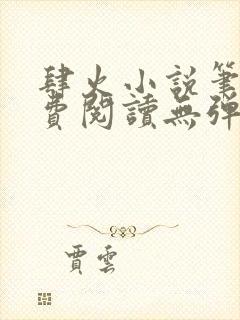 肆火小說筆
費閱讀無彈
賈雲